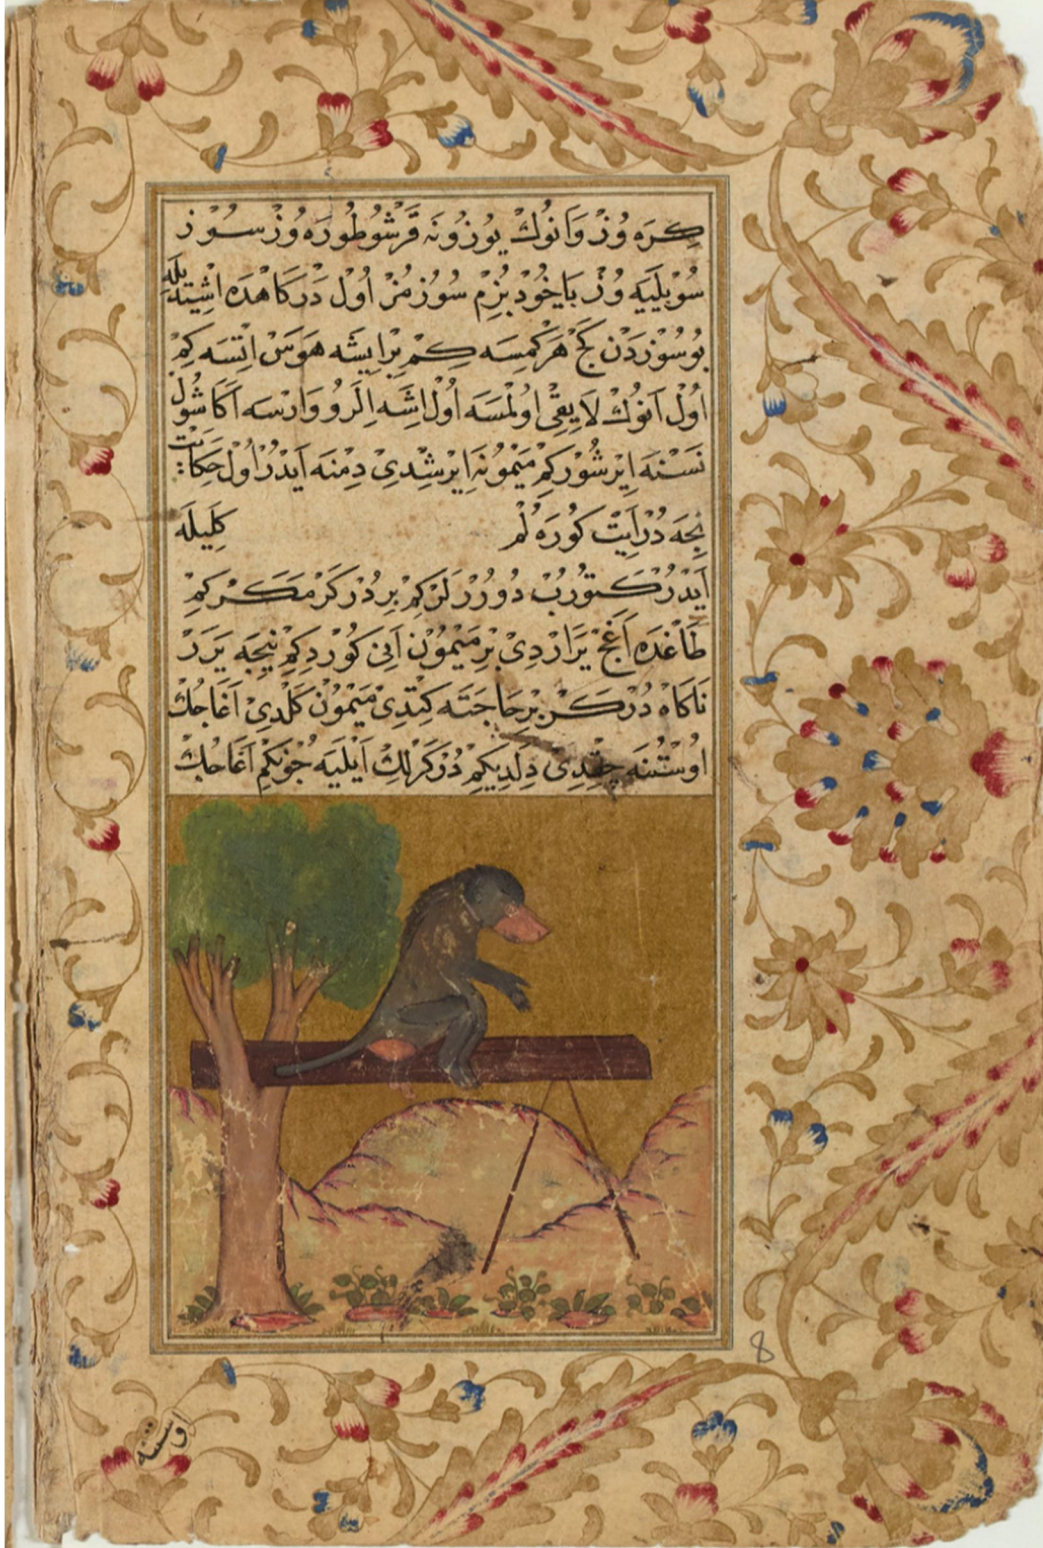 كِرَه وُزْ وَاَنوُكْ يوُزوُنَه قَرْشوُ طُورَه وُزْ سُوز
سُويْلَيَه وُزْ يَاخُودْ بِزُمْ سُوزُمُزْ اُولْ دَرْكَاهْدَه اِشِتيلَه
بُو سُوزْدَنْ كَجْ هَرْكِمْسَه كِمْ بِرْ اِيشَه هَوَسْ اِتْسَه كِمْ
اُولْ اَنوُكْ لَايِقِى اُولْمَسَه اُولْ اِشَه اِلَرُو وَارْسَه اَكَا شُولْ
نَسْنَه اِيْرِشُورْ كِمْ مَيْمُونَه اِيْرِشْدِى دِمْنَه اَيْدُرْ اُولْ حِكَايَتْ
نِجَه دُرْ اَيِتْ كُورَه لُمْ
كَلِيلَه
اَيْدُرْ كَتُورُبْ دُورُرْلَرْ كِمْ بِرْ دُرْكَرْ مَكَرْ كِمْ
طَاغْدَه اَغَجْ يَرَارْدِى بِرْ مَيْمُونْ اَنِى كُورْدِ كِمْ نِيجَه يَرَرْ
نَاكَاهْ دُرْكَرْ بِرْ حَاجَتَه كِتْدِى مَيْمُونْ كَلْدِى اَغَاجُكْ
اُوسْتُنَه جِقْدِى دِلَدِيكِمْ دُرْكَرْلِكْ اَيْلَيَه جُونْكِمْ اَغَاجُكْ
8
اوستنه